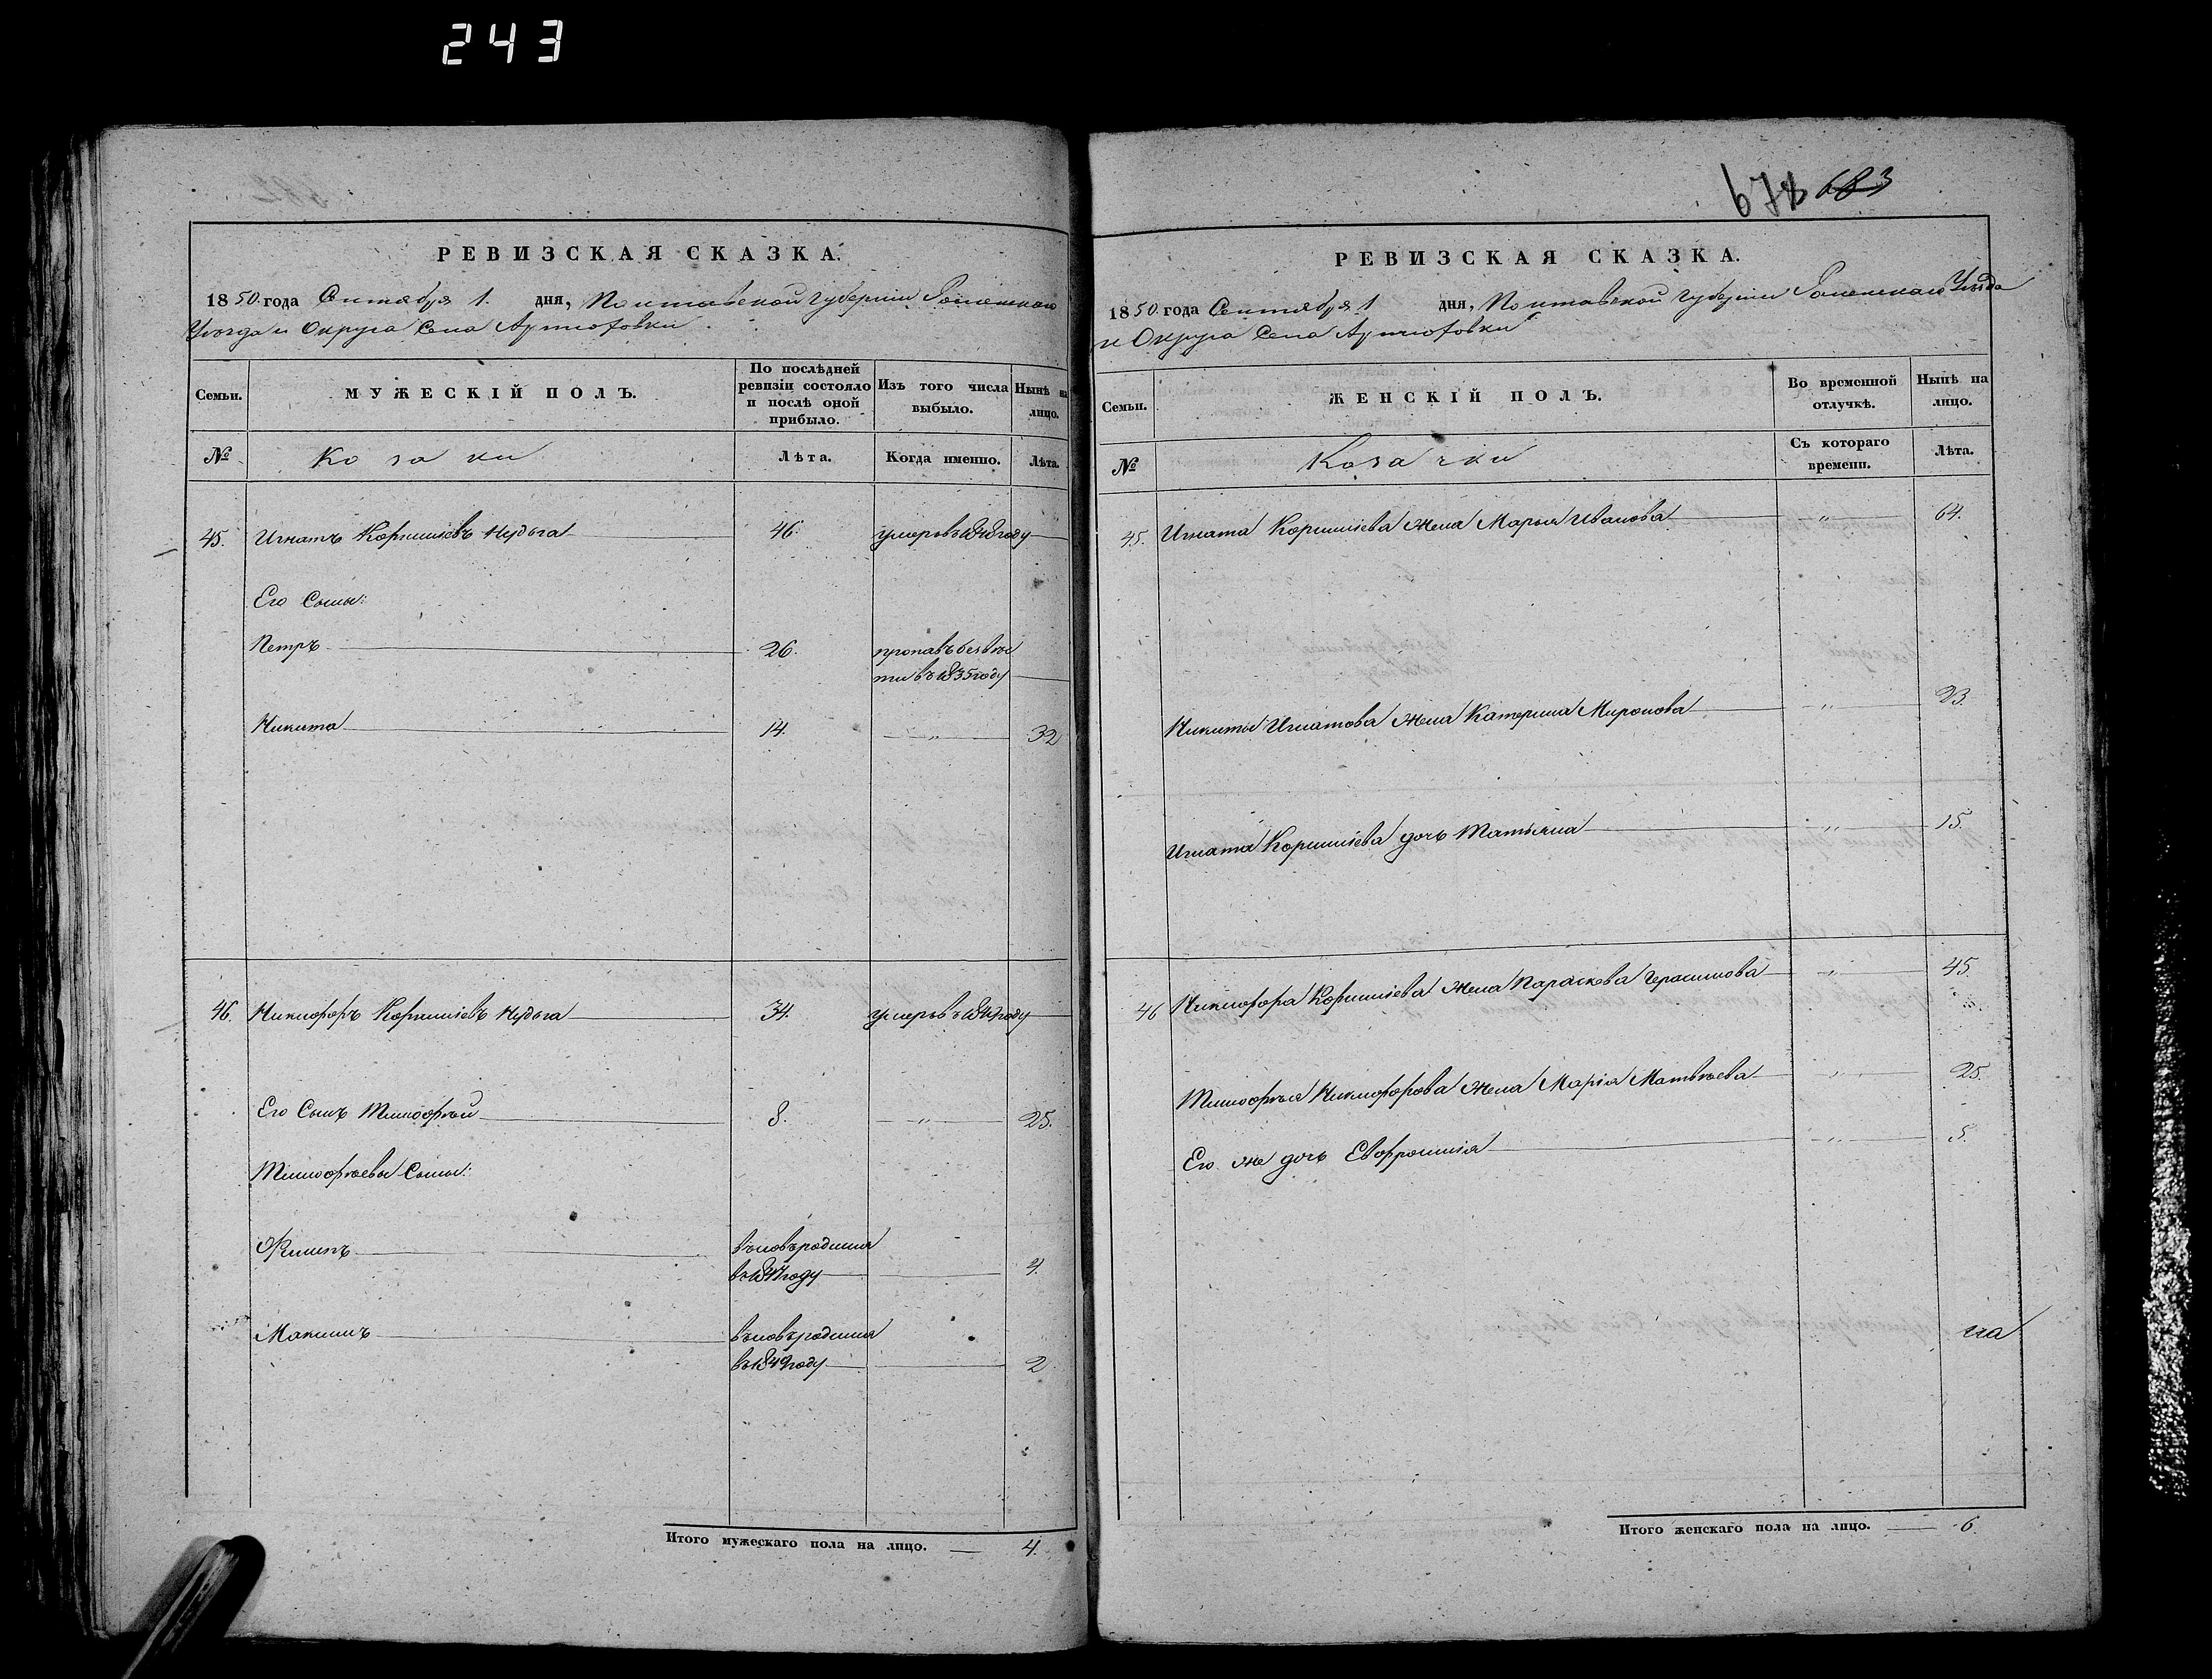 243
678 683
РЕВИЗСКАЯ СКАЗКА.
1850 года Сентября 1. дня, Полтавской губерніи Роменскаго
Уѣзда и Округа Села Артюховки
Семьи. МУЖЕСКІЙ ПОЛЪ. По послѣдней ревизіи состояло и послѣ оной прибыло. Изъ того числа выбыло. Нынѣ на лицо.
№ Козаки Лѣта. Когда именно. Лѣта.
45. Игнатъ Корнилиевъ Нудьга 46. умеръ въ 1848 году
Его Сыны:
Петръ 26. пропавъ безвѣс
ти въ 1835 году
Никита 14. " 32
46. Никифоръ Корнилиевъ Нудьга 34. умеръ въ году
Его Сынъ Тимофѣй 8. " 25.
Тимофѣевы Сыны:
Филипъ вновь родился
въ 1847 году 4.
Максимъ вновь родился
въ 1849 году 2
Итого мужескаго пола на лицо. 4.
РЕВИЗСКАЯ СКАЗКА.
1850 года Сентября 1 дня, Полтавской губерніи Роменскаго Уѣзда
и Округа Села Артюховки
Семьи. ЖЕНСКІЙ ПОЛЪ. Во временной отлучкѣ. Нынѣ на лицо.
№ Козачки Съ котораго времени. Лѣта.
45. Игната Корнилиева жена Марья Иванова " 64.
Никиты Игнатова жена Катерина Миронова " 23.
Игната Корнилиева дочь Татьяна " 15.
46 Никифора Корнилиева жена Параскева Герасимова " 45.
Тимофѣя Никифорова жена Марія Матвѣева " 25.
Его же дочь Евфросинія " 5.
на
Итого женскаго пола на лицо. 6.